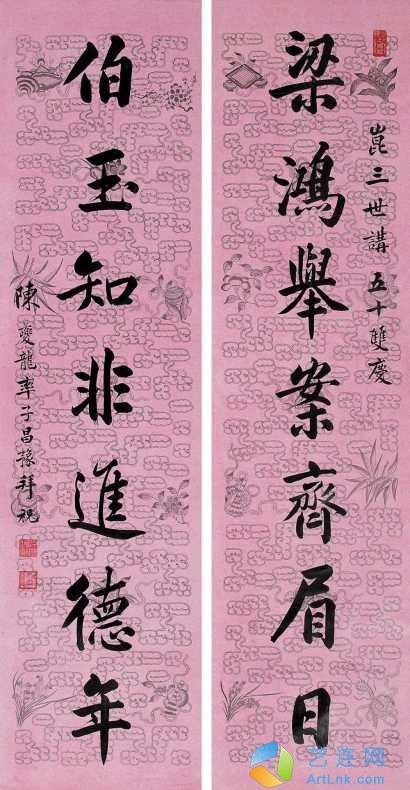 崑三世講 五十雙慶
梁鴻舉案齊眉日
伯玉知非進德年
陳夔龍率子昌豫拜祝
艺连网
ArtLnk.com